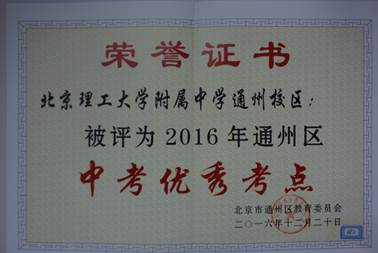 荣誉证书
北京理工大学附属中学通州校区：
被评为2016年通州区
中考优秀考点
北京市通州区教育委员会
二〇一六年十二月二十日